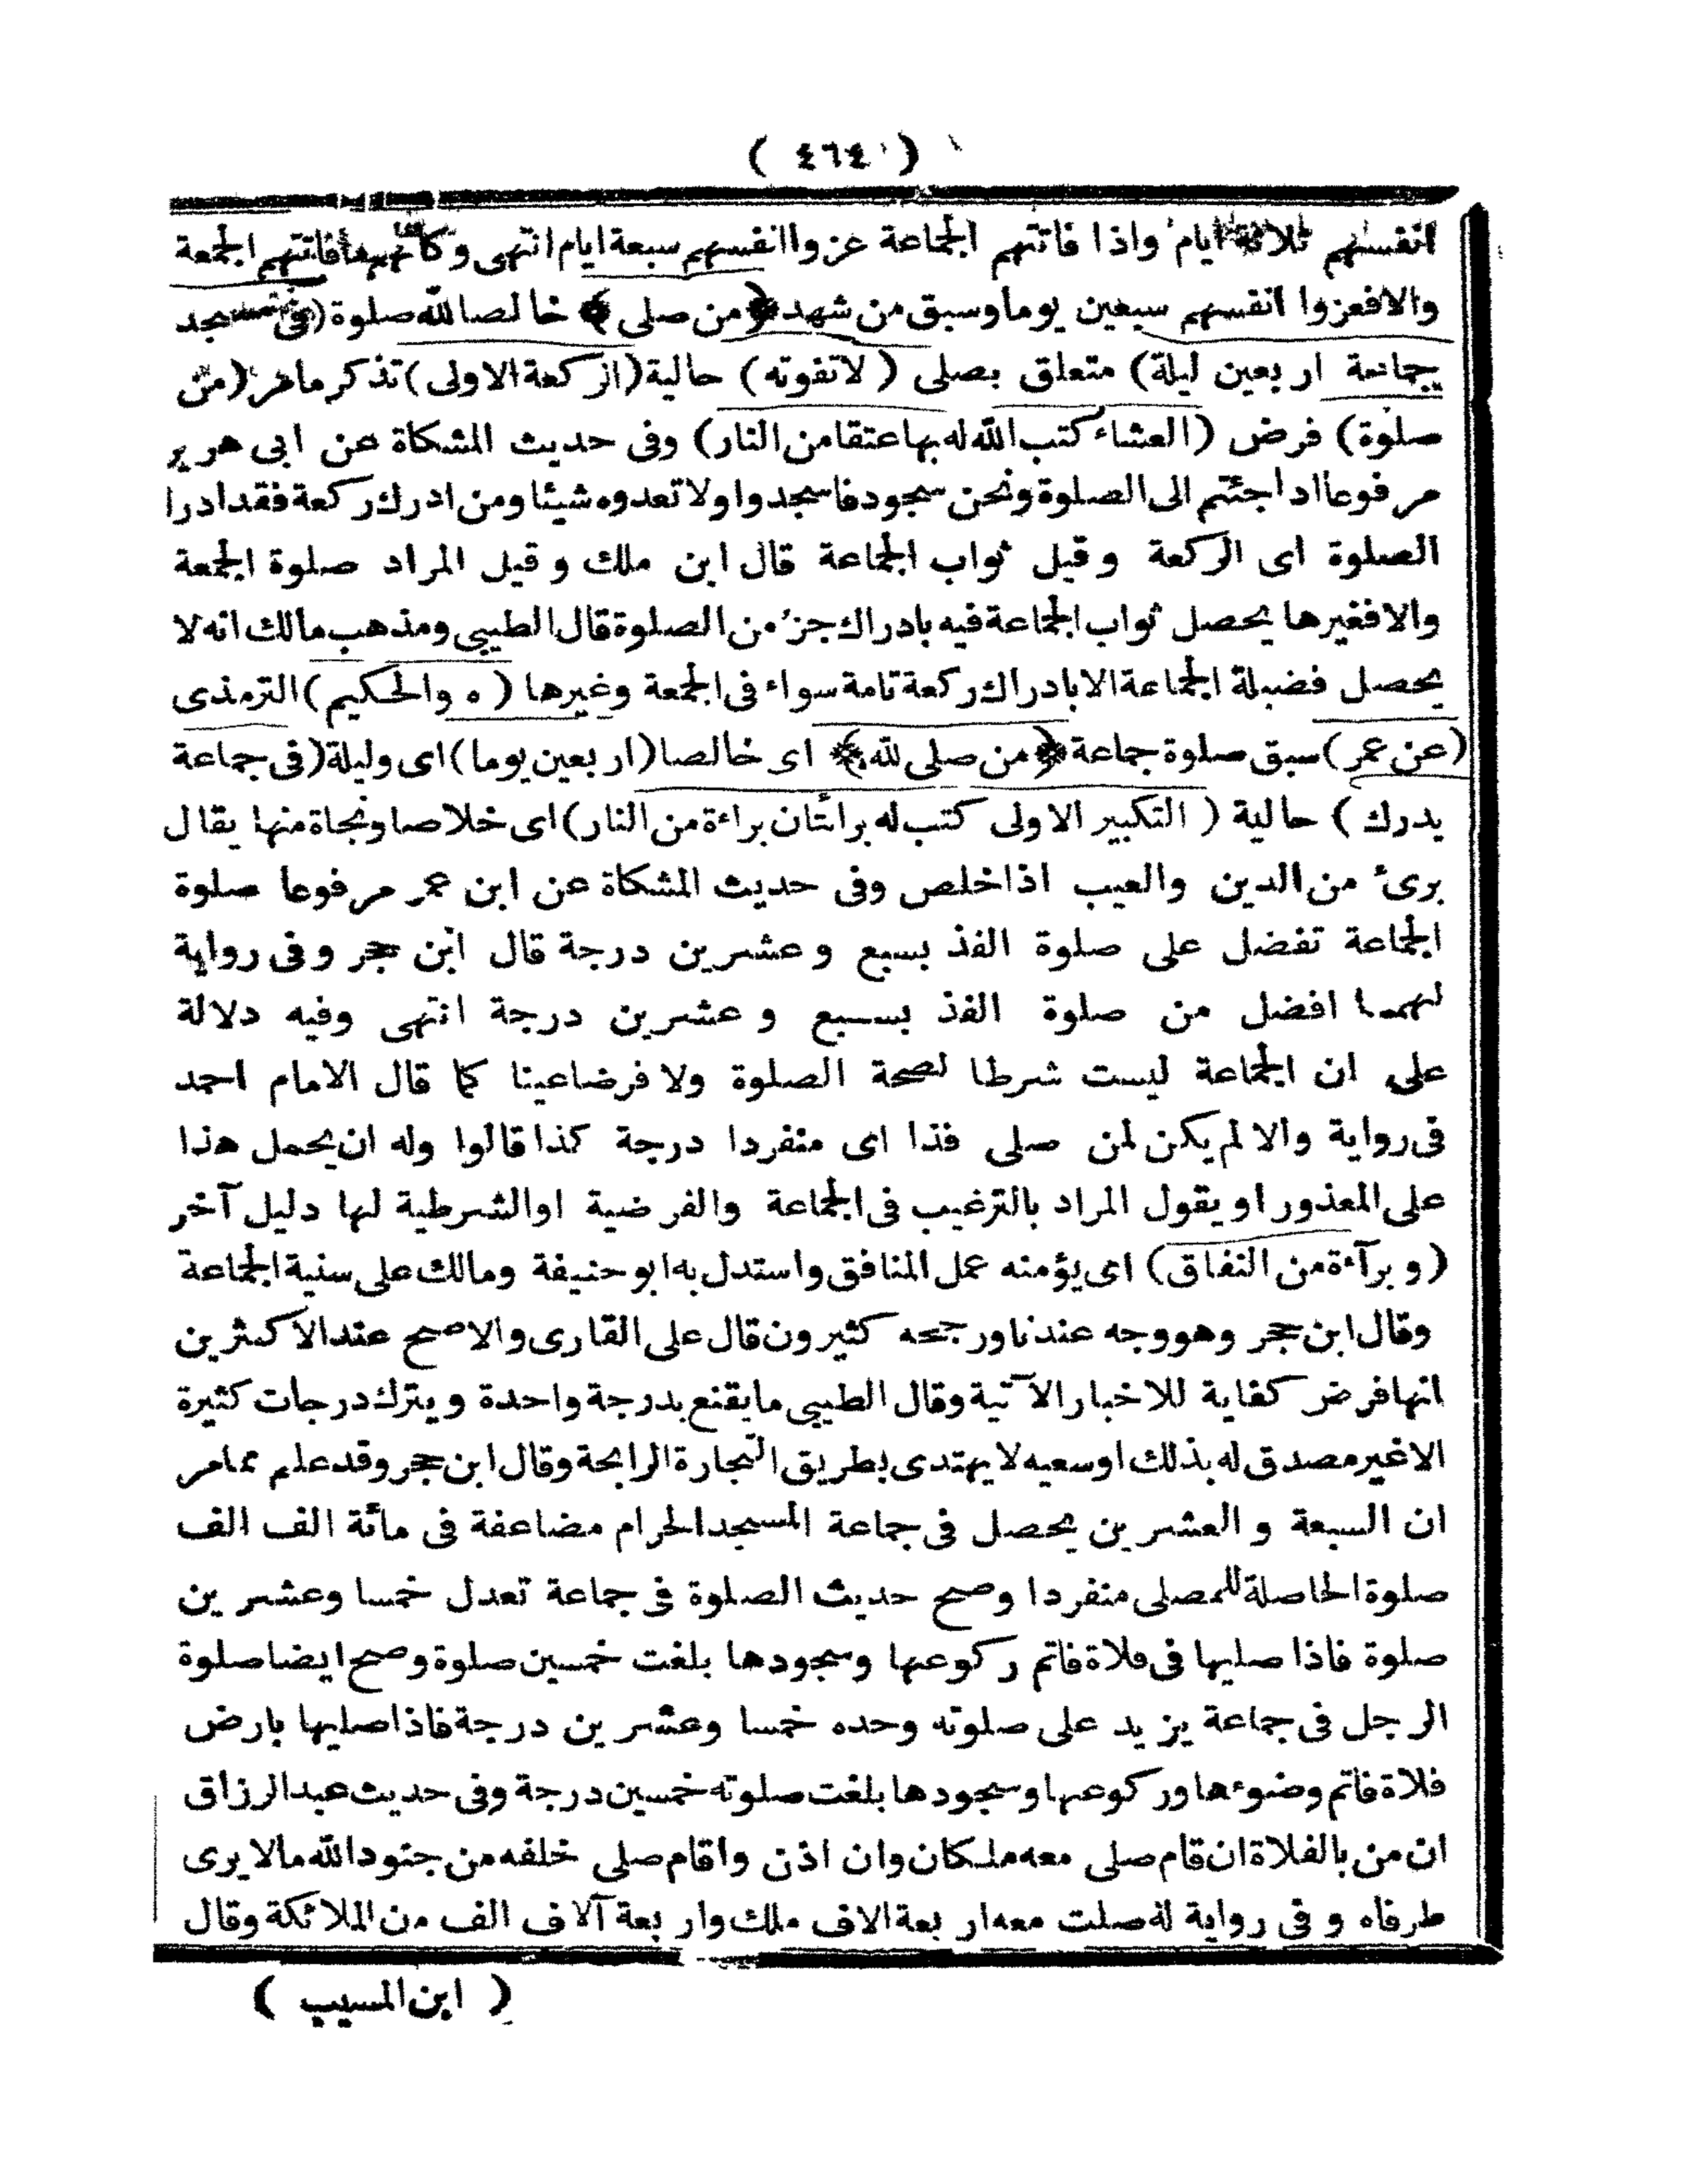 ( ٤٦٤ )
انفسهم ثلاثة ايام واذا فاتتهم الجماعة عزوا انفسهم سبعة ايام انتهى وكأنهم ما فاتتهم الجمعة
والا فعزوا انفسهم سبعين يوما وسبق من شهد ﴿ من صلى ﴾ خالصا لله صلوة ( فى مسجد
جماعة اربعين ليلة ) متعلق بصلى ( لا تفوته ) حالية ( الركعة الاولى ) تذكر ما مر ( من
صلوة ) فرض ( العشاء كتب الله له بها عتقا من النار ) وفى حديث المشكاة عن ابى هرير
مرفوعا اذا جئتم الى الصلوة ونحن سجود فاسجدوا ولا تعدوه شيئا ومن ادرك ركعة فقد ادرا
الصلوة اى الركعة وقيل ثواب الجماعة قال ابن ملك وقيل المراد صلوة الجمعة
والا فغيرها يحصل ثواب الجماعة فيه بادراك جزء من الصلوة قال الطيبى ومذهب مالك انه لا
يحصل فضيلة الجماعة الا بادراك ركعة تامة سواء فى الجمعة وغيرها ( ه والحكيم ) الترمذى
( عن عمر ) سبق صلوة جماعة ﴿ من صلى لله ﴾ اى خالصا ( اربعين يوما ) اى وليلة ( فى جماعة
يدرك ) حالية ( التكبير الاولى كتب له برائتان براءة من النار ) اى خلاصا ونجاة منها يقال
برئ من الدين والعيب اذا خلص وفى حديث المشكاة عن ابن عمر مرفوعا صلوة
الجماعة تفضل على صلوة الفذ بسبع وعشرين درجة قال ابن حجر وفى رواية
لهما افضل من صلوة الفذ بسبع وعشرين درجة انتهى وفيه دلالة
على ان الجماعة ليست شرطا لصحة الصلوة ولا فرضا عينا كما قال الامام احمد
فى رواية والا لم يكن لمن صلى فذا اى منفردا درجة كذا قالوا وله ان يحمل هذا
على المعذور او يقول المراد بالترغيب فى الجماعة والفرضية او الشرطية لها دليل آخر
( وبرآءة من النفاق ) اى يؤمنه عمل المنافق واستدل به ابو حنيفة ومالك على سنية الجماعة
وقال ابن حجر وهو وجه عندنا ورجحه كثيرون قال على القارى والاصح عند الاكثرين
انها فرض كفاية للاخبار الآتية وقال الطيبى ما يقنع بدرجة واحدة ويترك درجات كثيرة
الا غير مصدق له بذلك او سعيه لا يهتدى بطريق التجارة الرابحة وقال ابن حجر وقد علم مما مر
ان السبعة والعشرين يحصل فى جماعة المسجد الحرام مضاعفة فى مائة الف الف
صلوة الحاصلة للمصلى منفردا وصح حديث الصلوة فى جماعة تعدل خمسا وعشرين
صلوة فاذا صليها فى فلاة فاتم ركوعها وسجودها بلغت خمسين صلوة وصح ايضا صلوة
الرجل فى جماعة يزيد على صلوته وحده خمسا وعشرين درجة فاذا صليها بارض
فلاة فاتم وضوءها وركوعها وسجودها بلغت صلوته خمسين درجة وفى حديث عبد الرزاق
ان من بالفلاة ان قام صلى معه ملكان وان اذن واقام صلى خلفه من جنود الله ما لا يرى
طرفاه وفى رواية له صلت معه اربعة الاف ملك واربعة آلاف الف من الملائكة وقال
( ابن المسيب )